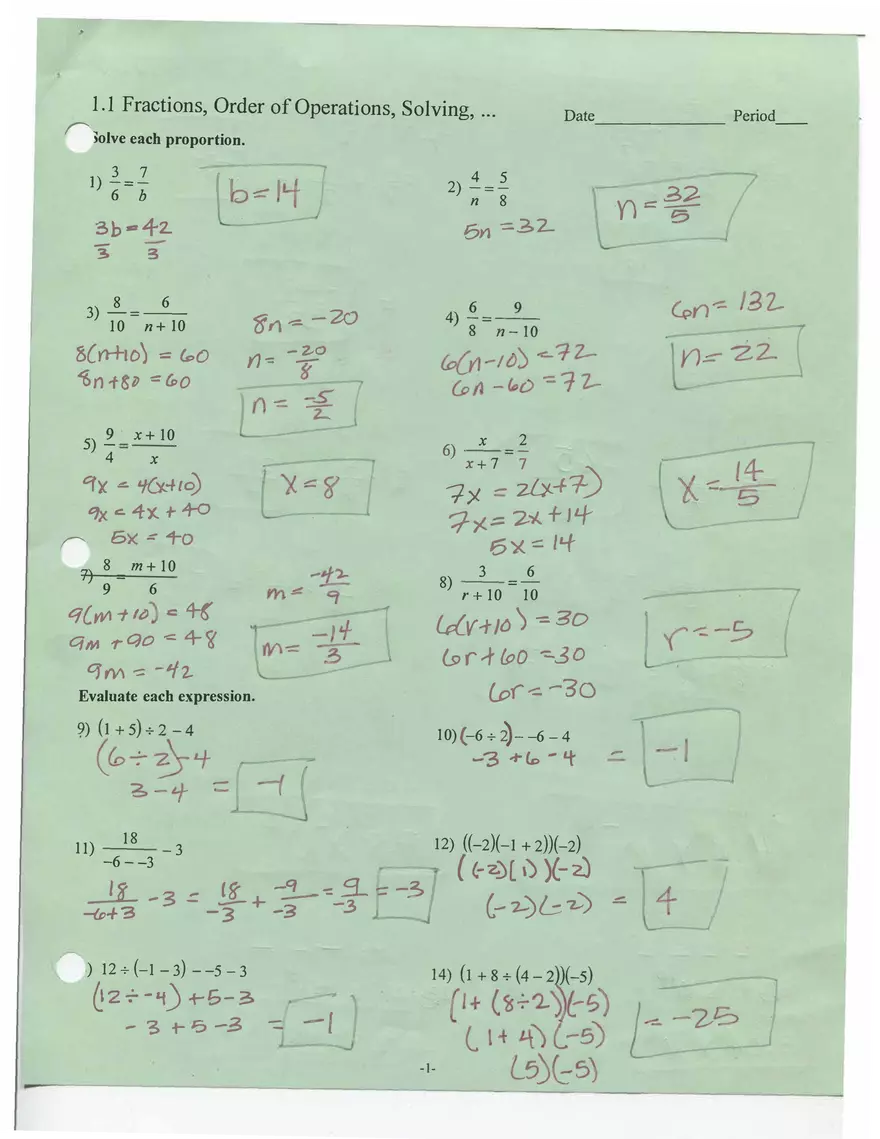 1.1 Fractions, Order of Operations, Solving, ...
Date____________ Period____
Solve each proportion.
1) 3/6 = 7/b
b = 14
3b = 42
3 3
2) 4/n = 5/8
5n = 32
n = 32/5
3) 8/10 = 6/(n + 10)
8(n+10) = 60
8n + 80 = 60
8n = -20
n = -20/8
n = -5/2
4) 6/8 = 9/(n − 10)
6(n-10) = 72
6n - 60 = 72
6n = 132
n = 22
5) 9/4 = (x + 10)/x
9x = 4(x+10)
9x = 4x + 40
5x = 40
x = 8
6) x/(x + 7) = 2/7
7x = 2(x+7)
7x = 2x + 14
5x = 14
x = 14/5
7) 8/9 = (m + 10)/6
9(m + 10) = 48
9m + 90 = 48
9m = -42
m = -42/9
m = -14/3
8) 3/(r + 10) = 6/10
6(r+10) = 30
6r + 60 = 30
6r = -30
r = -5
Evaluate each expression.
9) (1 + 5) ÷ 2 − 4
(6 ÷ 2) - 4
3 - 4 = -1
10) (−6 ÷ 2) − −6 − 4
-3 + 6 - 4 = -1
11) 18/(−6 − −3) − 3
18/(-6+3) - 3 = 18/-3 + -9/-3 = 9/-3 = -3
12) ((−2)(−1 + 2))(−2)
((-2)(1))(-2)
(-2)(-2) = 4
) 12 ÷ (−1 − 3) − −5 − 3
(12 ÷ -4) + 5 - 3
- 3 + 5 - 3 = -1
14) (1 + 8 ÷ (4 − 2))(−5)
(1 + (8 ÷ 2))(-5)
(1 + 4)(-5)
(5)(-5)
= -25
-1-